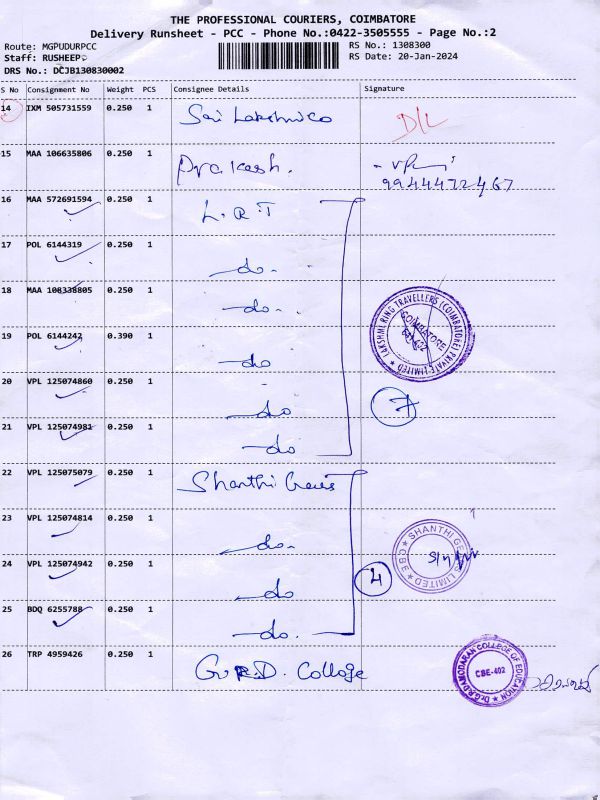 THE PROFESSIONAL COURIERS, COIMBATORE
Delivery Runsheet - PCC - Phone No.:0422-3505555 - Page No.:2
Route: MGPUDURPCC
Staff: RUSHEEP
DRS No.: DCJB130830002
RS No.: 1308300
RS Date: 20-Jan-2024
S No Consignment No Weight PCS Consignee Details Signature
14 IXM 505731559 0.250 1 Sri Lakshmi co D/L
15 MAA 106635806 0.250 1 Prakash.
9944472467
16 MAA 572691594 0.250 1 L.R.T
17 POL 6144319 0.250 1 -do.
18 MAA 108338805 0.250 1 -do.
19 POL 6144242 0.390 1 -do
20 VPL 125074860 0.250 1 -do
21 VPL 125074981 0.250 1 -do
LAKSHMI RING TRAVELLERS (COIMBATORE) PRIVATE LIMITED
COIMBATORE
641 402
7
22 VPL 125075079 0.250 1 Shanthi Gears
23 VPL 125074814 0.250 1 -do.
24 VPL 125074942 0.250 1 -do
25 BDQ 6255788 0.250 1 -do.
SHANTHI GEARS LIMITED
CBE
4
26 TRP 4959426 0.250 1 G.R.D. College
Dr.G.R.DAMODARAN COLLEGE OF EDUCATION
CBE-402